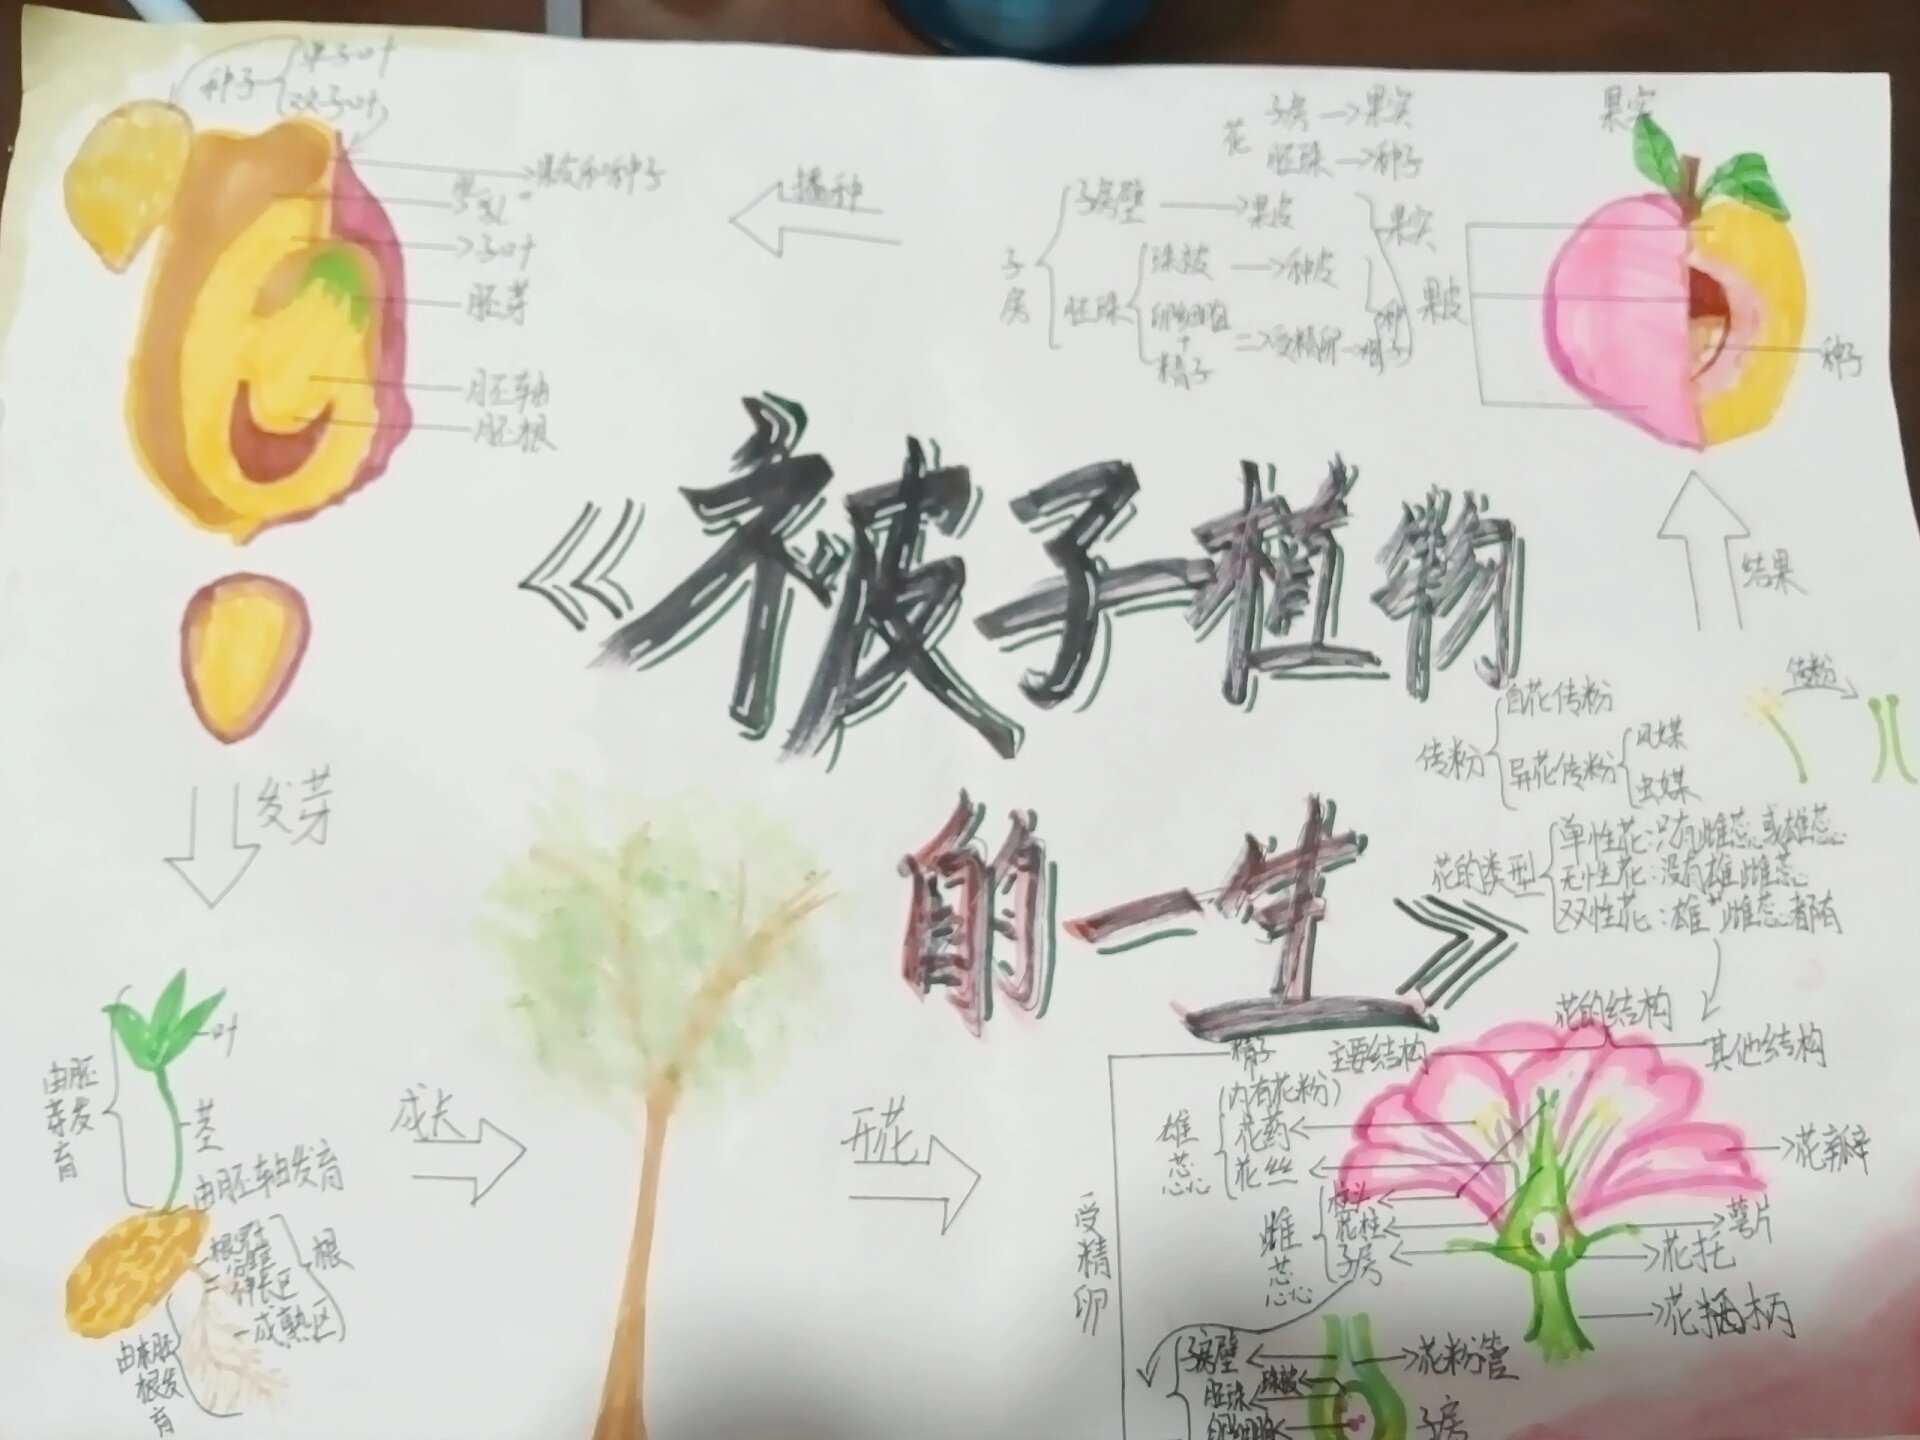 种子
单子叶
双子叶
果皮和种子
胚乳
子叶
胚芽
胚轴
胚根
播种
花
子房→果实
胚珠→种子
子房
子房壁→果皮
胚珠
珠被→种皮
卵细胞
+
精子
受精卵→胚
种子
果实
果实
果皮
种子
《被子植物
的一生》
结果
传粉
传粉
自花传粉
异花传粉
风媒
虫媒
花的类型
单性花:只有雌蕊或雄蕊
无性花:没有雄雌蕊
双性花:雄雌蕊都有
发芽
叶
由胚芽发育
茎
由胚轴发育
根冠
分生区
伸长区
成熟区
根
由胚根发育
成长
开花
花的结构
主要结构
其他结构
精子
(内有花粉)
雄蕊
花药
花丝
雌蕊
柱头
花柱
子房
花瓣
萼片
花托
花柄
受精卵
子房壁
胚珠
珠被
卵细胞
花粉管
子房